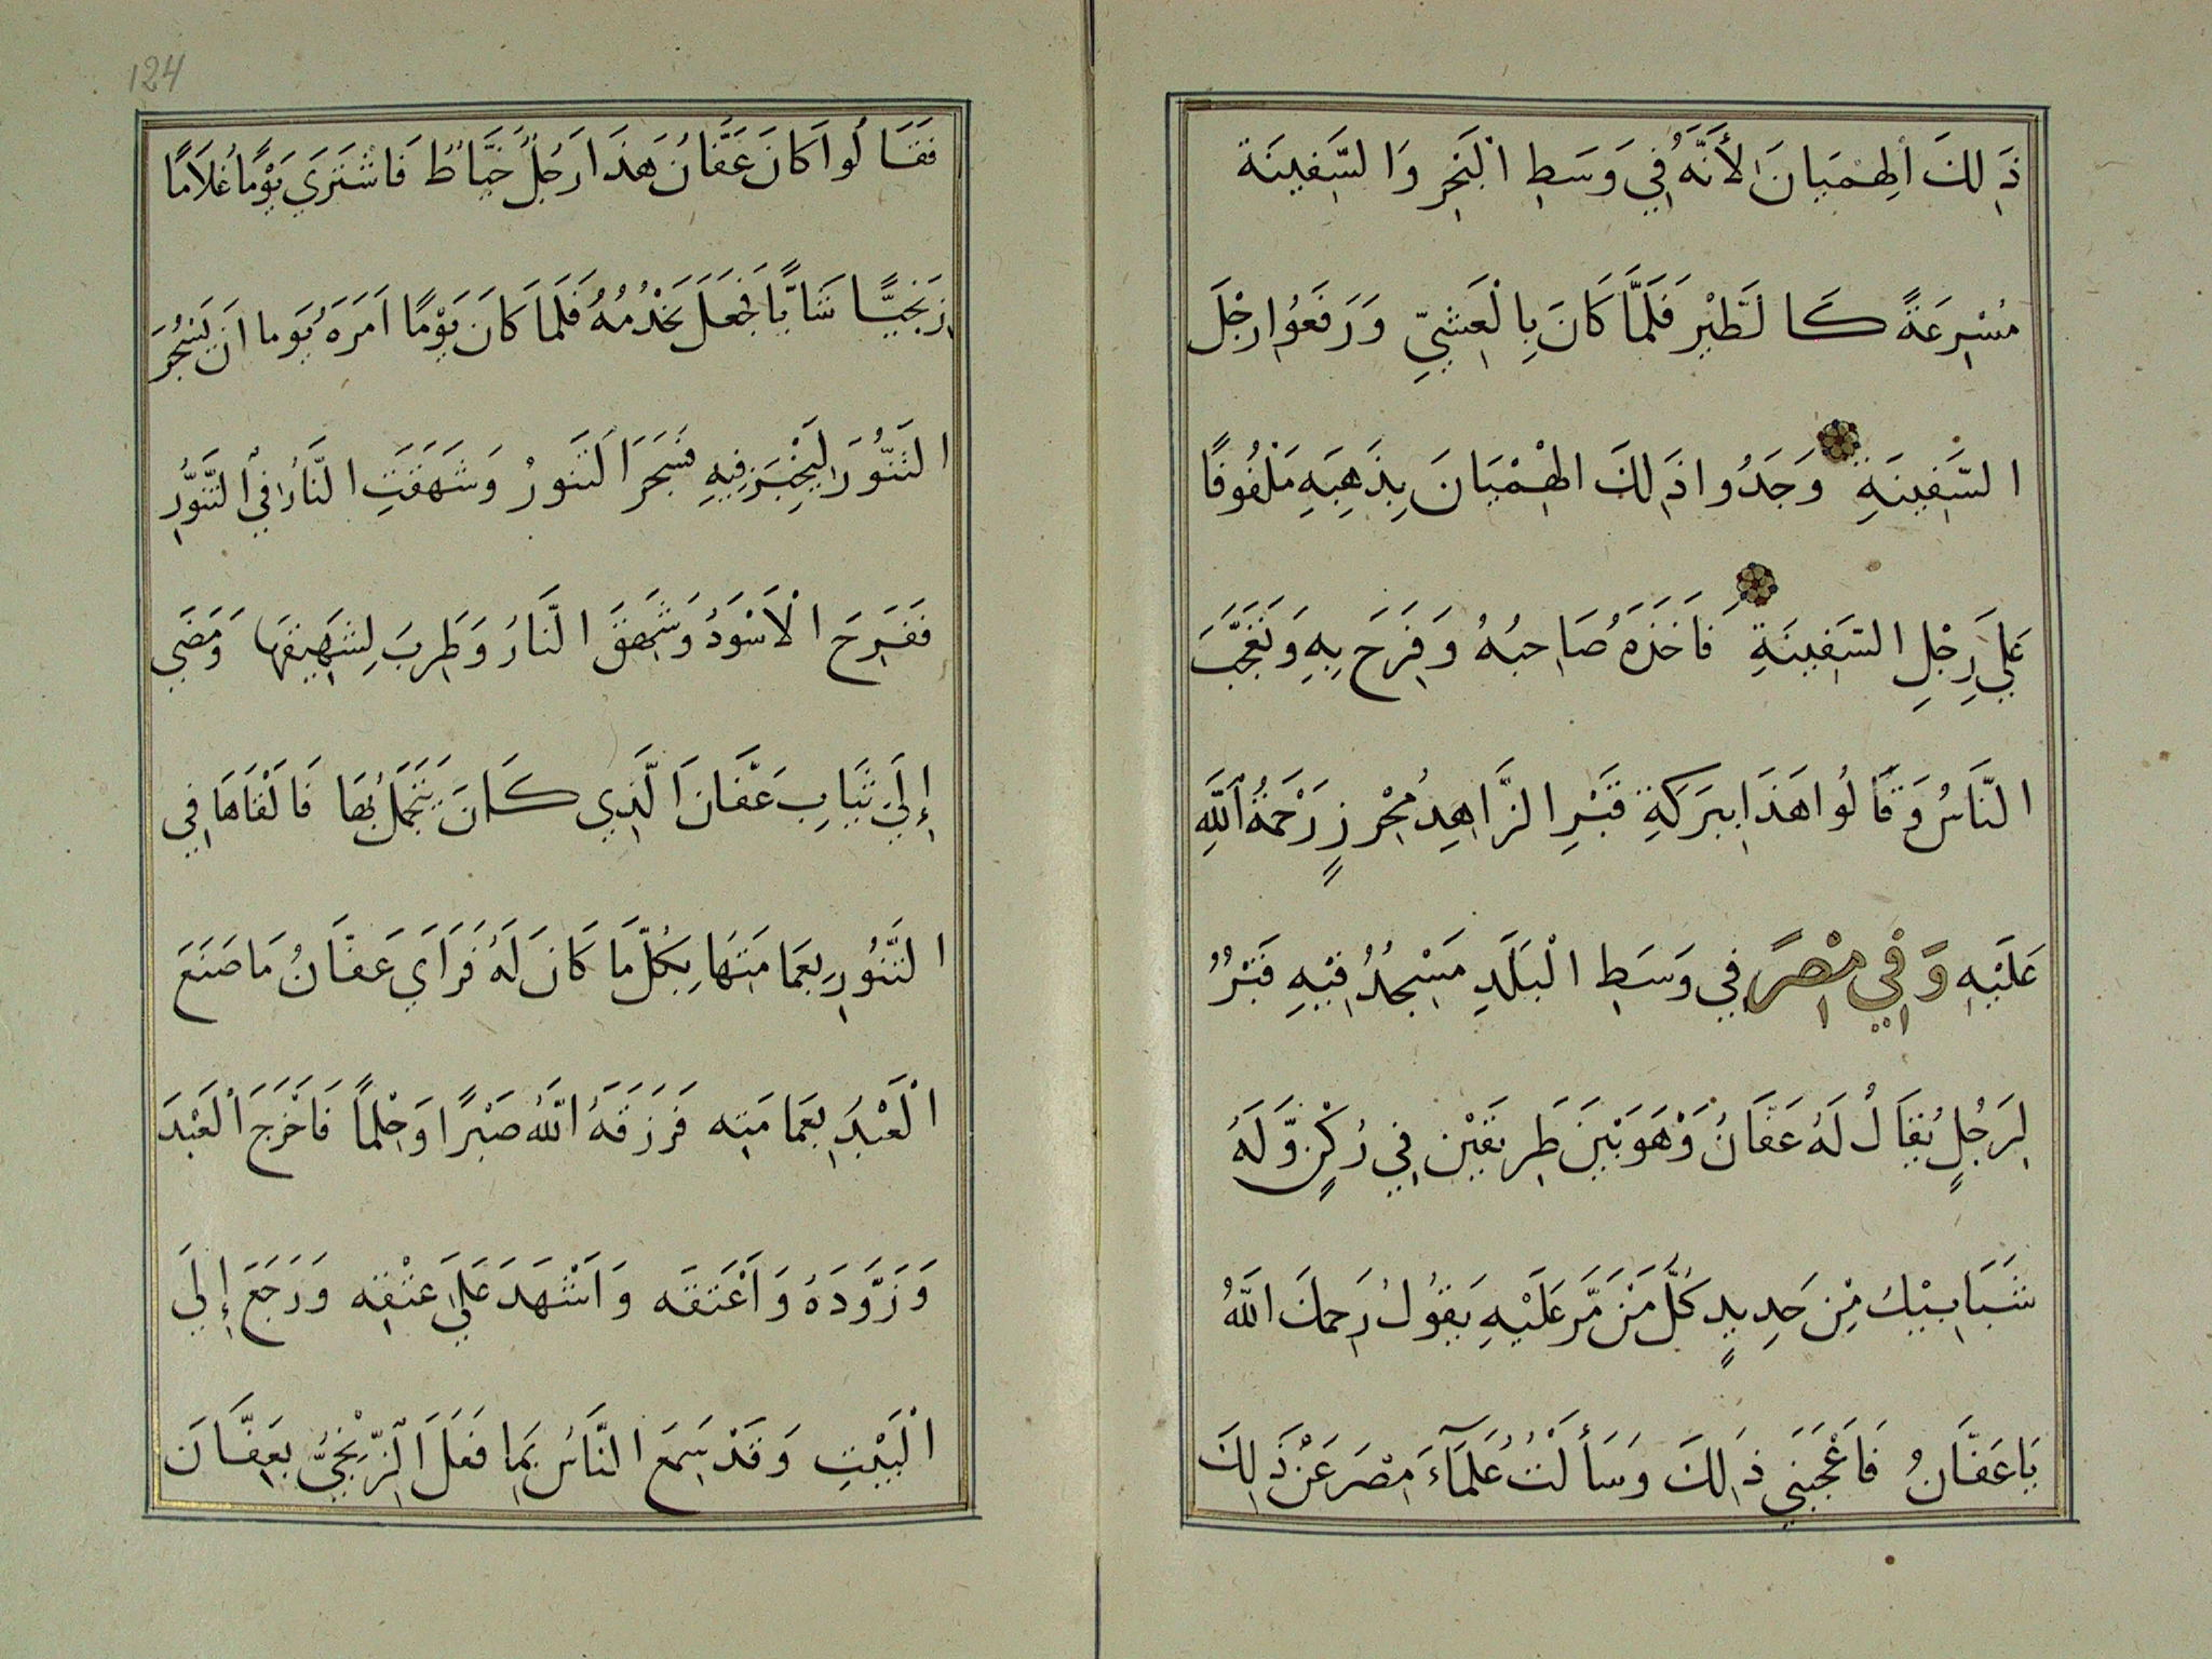 ذَلِكَ الْهِمْيَانَ لِأَنَّهُ فِي وَسَطِ الْبَحْرِ وَالسَّفِينَة
مُسْرِعَةً كَالطَّيْرِ فَلَمَّا كَانَ بِالْعَشِيِّ وَرَفَعُوا رِجْلَ
السَّفِينَةِ وَجَدُوا ذَلِكَ الْهِمْيَانَ بِذَهَبِهِ مَلْفُوفًا
عَلَي رِجْلِ السَّفِينَةِ فَاَخَذَهُ صَاحِبُهُ وَفَرِحَ بِهِ وَتَعَجَّبَ
النَّاسُ وَقَالُوا هَذَا بِبَرَكَةِ قَبْرِ الزَّاهِدِ مُحْرِزٍ رَحْمَةُ اللَّهِ
عَلَيْهِ وَفِي مِصْرَ فِي وَسَطِ الْبَلَدِ مَسْجِدٌ فِيْهِ قَبْرٌ
لِرَجُلٍ يُقَالُ لَهُ عَفَّانُ وَهْوَ بَيْنَ طَرِيقَيْنِ فِي رُكْنٍ وَّلَهُ
شَبَابِيْكُ مِّنْ حَدِيدٍ كُلُّ مَنْ مَّرَّ عَلَيْهِ يَقُولُ رَحِمَكَ اللَّهُ
يَا عَفَّانُ فَاَعْجَبَنِي ذَلِكَ وَسَأَلْتُ عُلَمَآءَ مِصْرَ عَنْ ذَلِكَ
124
فَقَالُوا كَانَ عَفَّانُ هَذَا رَجُلٌ خَيَّاطٌ فَاشْتَرَي يَوْمًا غُلَامًا
زَنْجِيًّا شَابًّا فَجَعَلَ يَخْدُمُهُ فَلَمَا كَانَ يَوْمًا اَمَرَهُ يَوما اَن يَسْجُرَ
التَنُّوَرَ لِيَخْبِزَ فِيهِ فَسَجَرَ التَنورُ وَشَهَقَتِ النَّارُ فِي التَّنُّورِ
فَفَرِحَ الْاَسْوَدُ وَشَهِقَ النَّارُ وَطَرِبَ لِشَهِيقِهَا وَمَضَي
إِلَي ثِيَابِ عَفَّانَ الَّذِي كَانَ يَتَجَمَّلُ بُهَا فَالْقَاهَا فِي
التَّنُورِ بِعَمَامَتِهَا بِكُلِّ مَّا كَانَ لَهُ فَرَاَي عَفَّانُ مَا صَنَعَ
الْعَبْدَ بِعَمَامَتِه فَرَزَقَهُ اللَّهُ صَبْرًا وَحِلْمًا فَاَخْرَجَ الْعَبْدَ
وَزَوَّدَهُ وَاَعْتَقَه وَاَشْهَدَ عَلَي عَتْقِه وَرَجَعَ إِلَي
الْبَيْتِ وَقَدْ سَمِعَ النَّاسُ بِمَا فَعَلَ الزِّنْجِيُّ بِعَفَّانَ